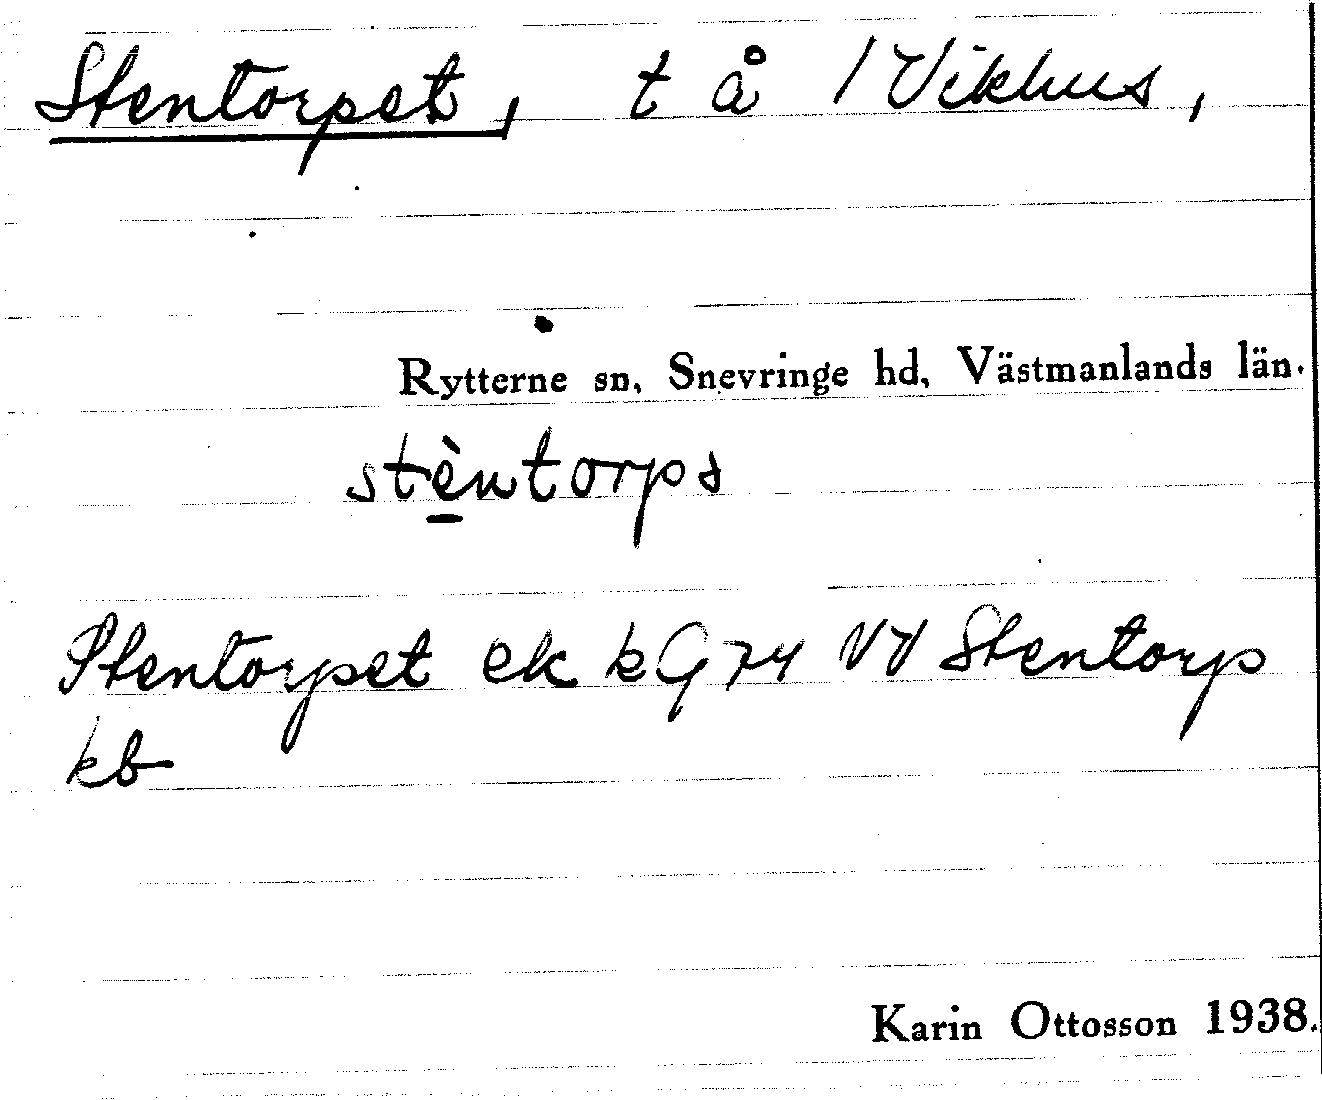 Stentorpet, t å 1 Vikhus,
Rytterne sn, Snevringe hd, Västmanlands län.
stèntorps
Stentorpet ek k G 74 VV Stentorp
kb
Karin Ottosson 1938.